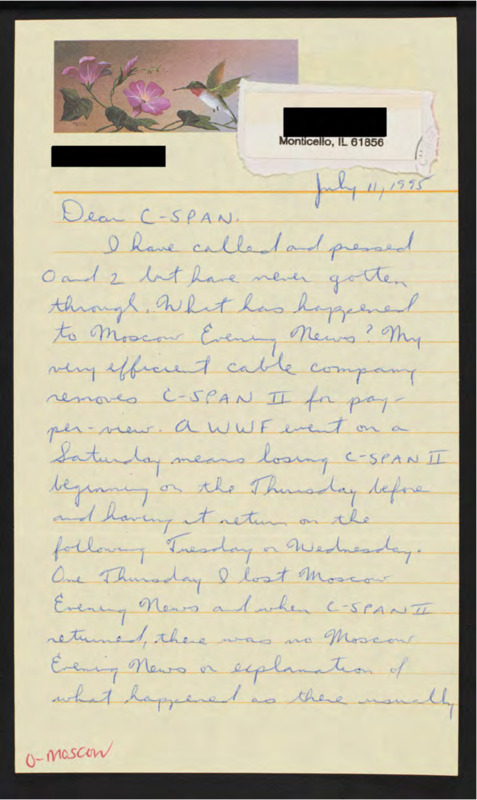 Monticello, IL 61856
July 11, 1995
Dear C-SPAN.
I have called and pressed
0 and 2 but have never gotten
through. What has happened
to Moscow Evening News? My
very efficient cable company
removes C-SPAN II for pay-
per-view. A WWF event on a
Saturday means losing C-SPAN II
beginning on the Thursday before
and having it return on the
following Tuesday or Wednesday.
One Thursday I lost Moscow
Evening News and when C-SPAN II
returned, there was no Moscow
Evening News or explanation of
what happened as there usually
O-MOSCOW